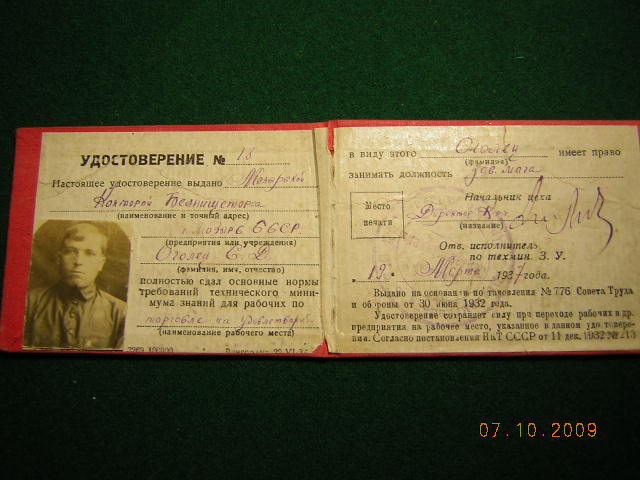 УДОСТОВЕРЕНИЕ № 18
Настоящее удостоверение выдано Мозырской
Конторой Белпищеторга
(наименование и точный адрес)
г. Мозырь БССР.
(предприятия или учреждения)
Оголец С Д
(фамилия, имя, отчество)
полностью сдал основные нормы
требований технического мини-
мума знаний для рабочих по
торговле на удовлетвор.
(наименование рабочего места)
в виду этого Оголец имеет право
(фамилия)
занимать должность зав. мага
Место
печати
Начальник цеха
Директор Кон.
(название)
Отв. исполнитель
по техмин. З. У.
19. Марта 1937 года.
Выдано на основании постановления № 776 Совета Труда
и обороны от 30 июня 1932 года.
Удостоверение сохраняет силу при переходе рабочих в др.
предприятия на рабочее место, указанное в данном удостовере-
нии. Согласно постановления НКТ СССР от 11 дек. 1932 №213
07.10.2009